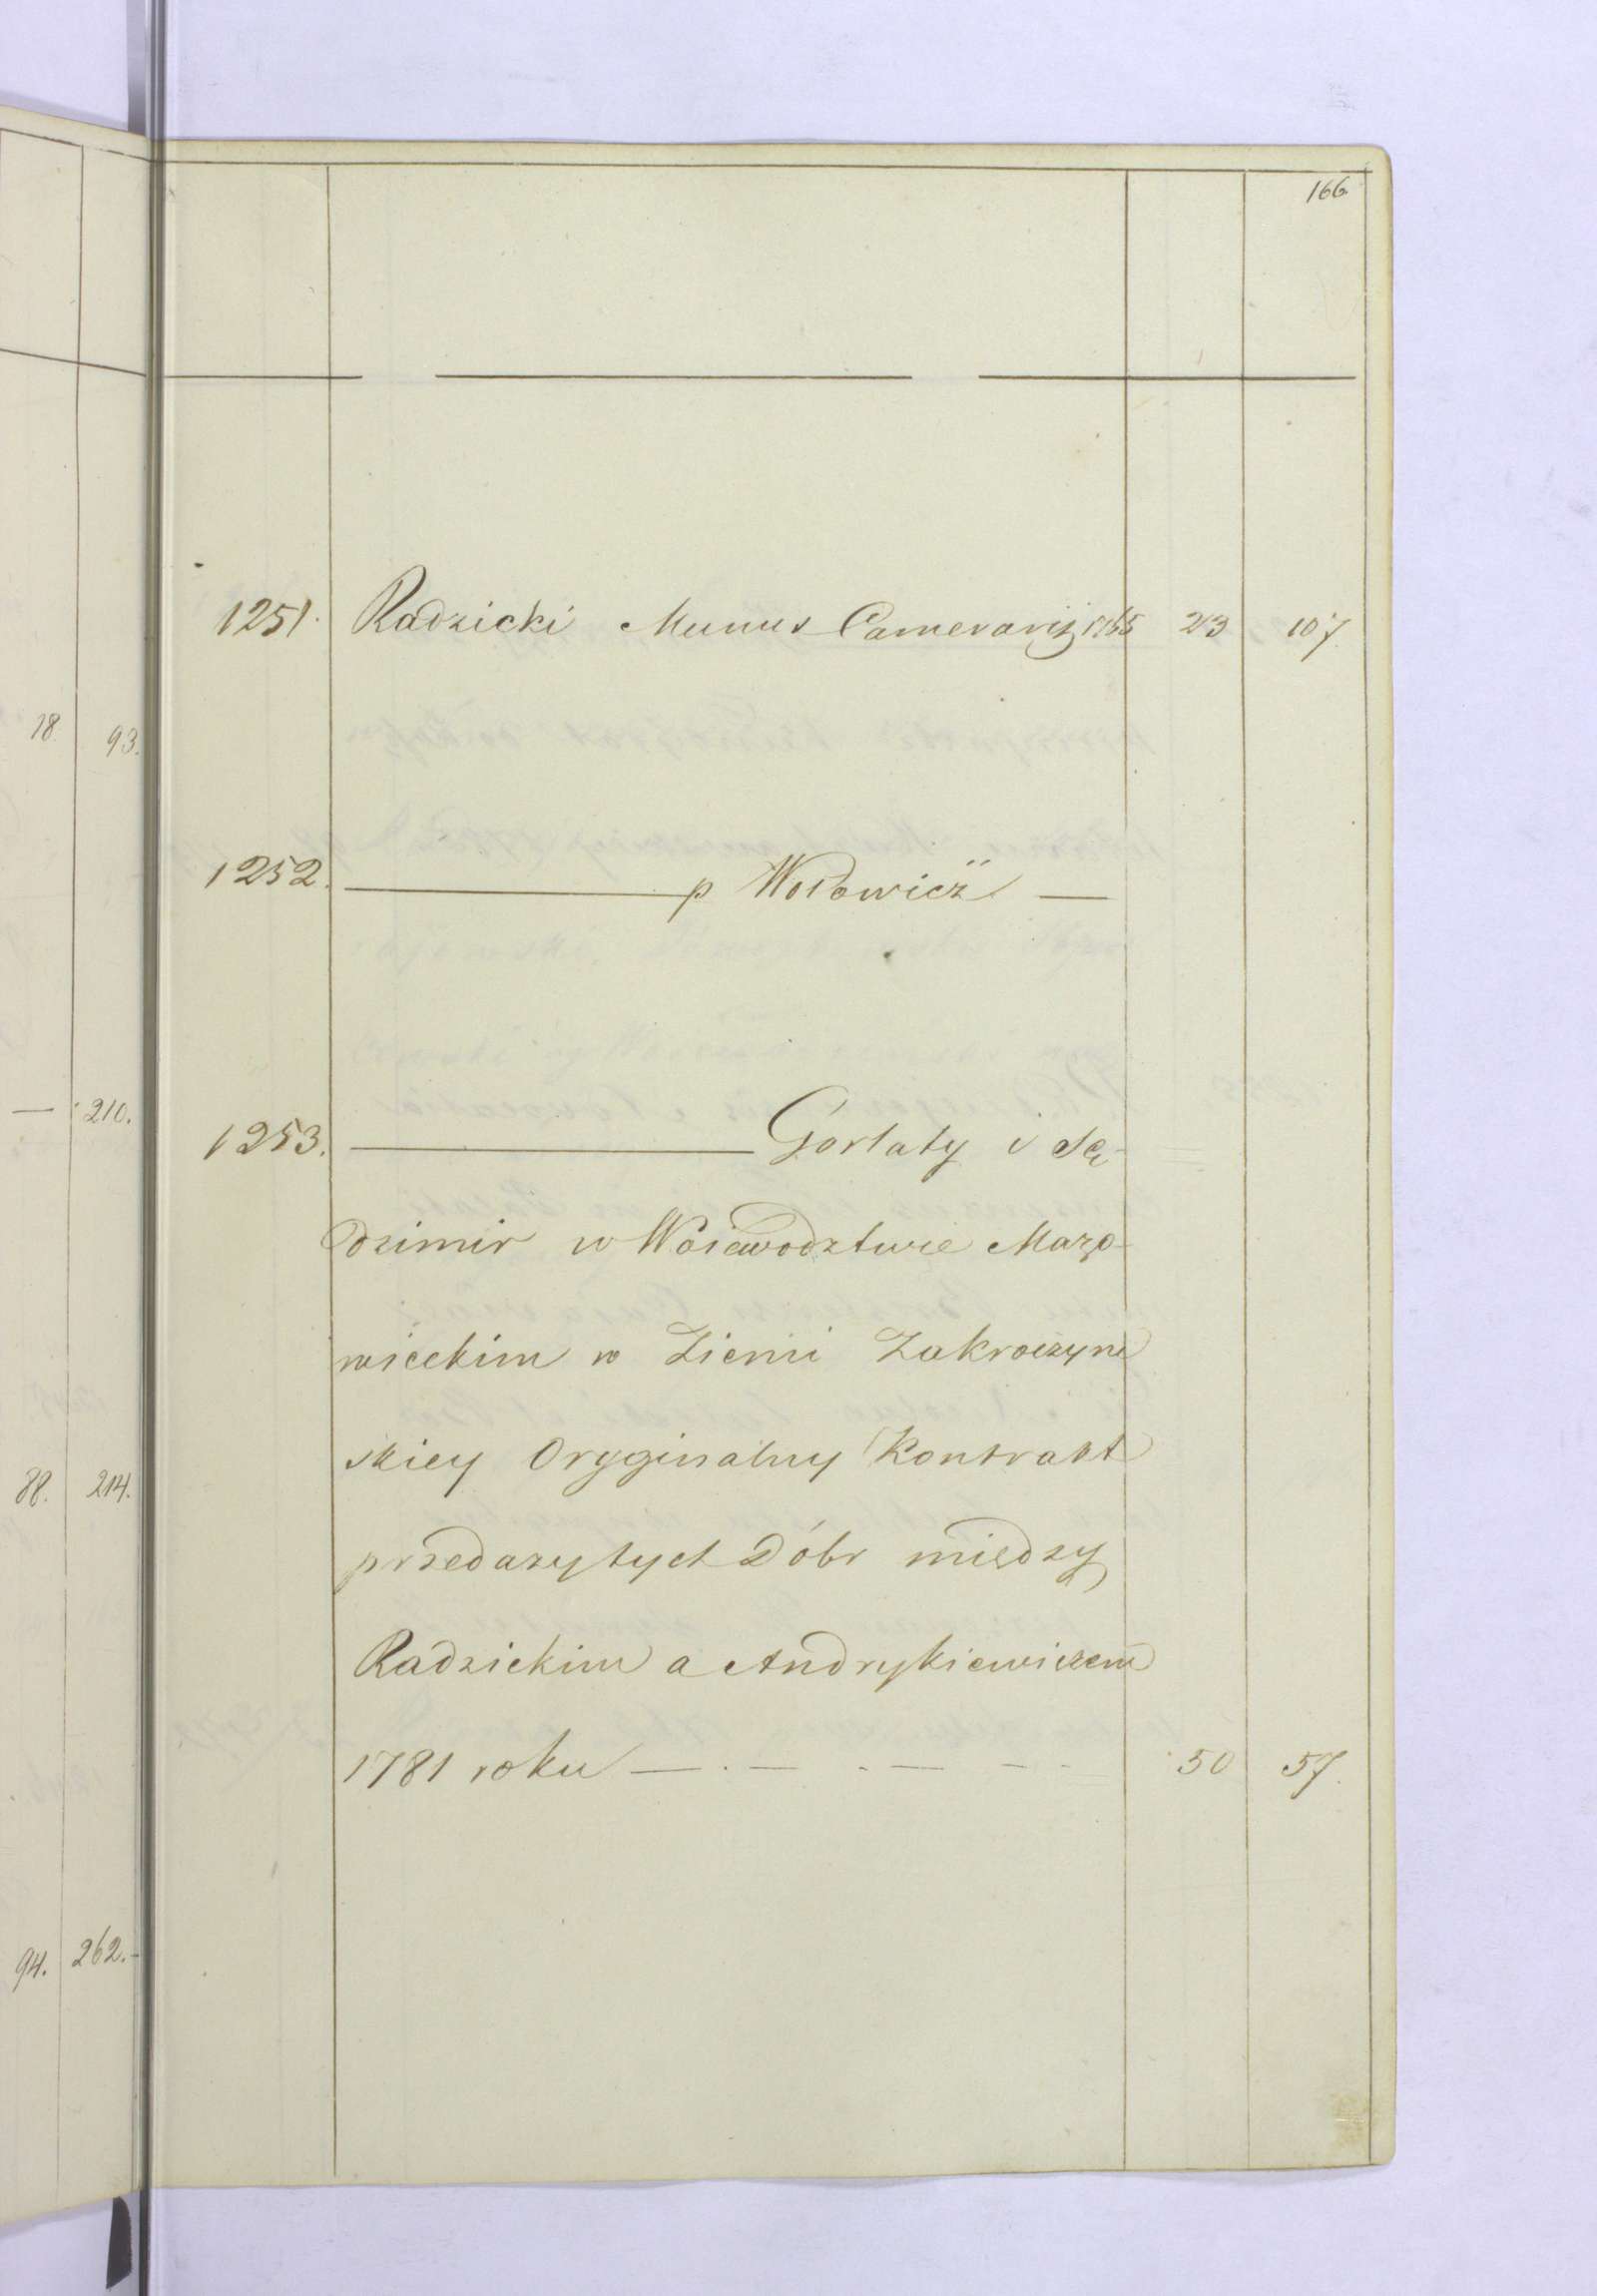 166
1251. Radzicki Munus Camerarij 1765 23 107.
18. 93.
1252. — p Wołowicz —
— 210.
1253. — Gorlaty i Sę-
dzimir w Woiewodztwie Mazo-
wieckim w Ziemi Zakroczym
skiey Oryginalny Kontrakt
88. 214.
przedazy tych Dóbr między
Radzickim a Andrykiewiczem
1781 roku — . — . — - - 50 57.
94. 262.